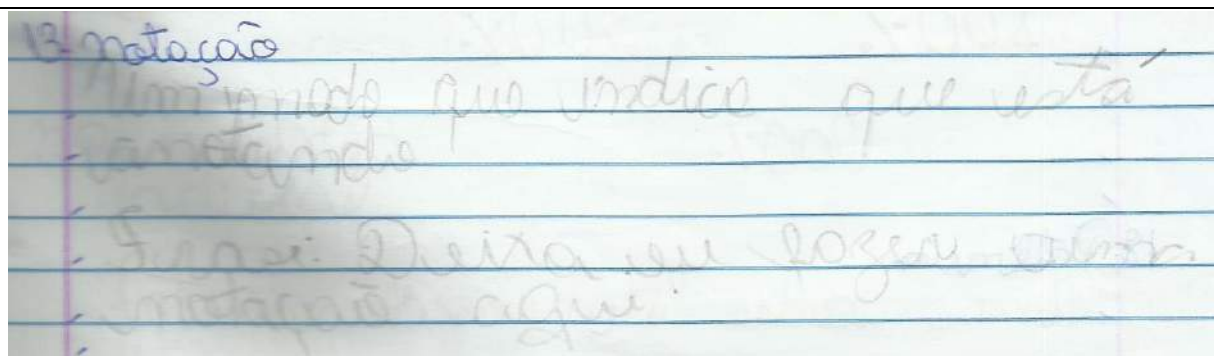 13- notação
Um modo que indica que está
anotando
Frase: Deixa eu fazer
notação aqui.